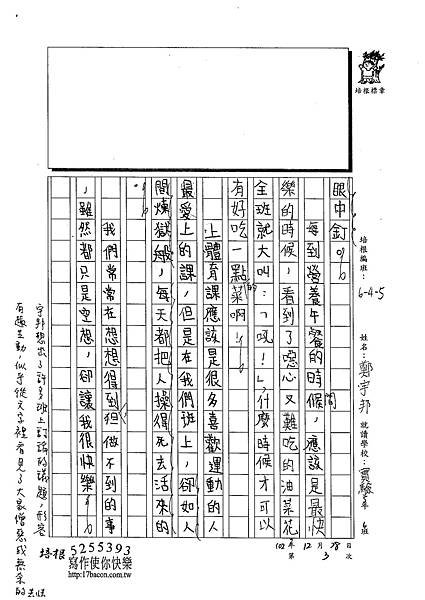 培根標章
培根編班：6-4-5
姓名：鄭宇邦
就讀學校：實驗
班
102年12月28日
第3次
眼中釘。
每到營養午餐的時候，應該是最快
樂的時候，看到了噁心又難吃的油菜花
全班就大叫：「呃！」什麼時候才可以
有好吃一點的菜啊！」
上體育課應該是很多喜歡運動的人
最愛上的課，但是在我們班上，卻如人
間煉獄般，每天都把人操得死去活來的
。
我們常常在想想得到但做不到的事
，雖然都只是空想，卻讓我很快樂。
間
宇邦想出了許多班上討論的議題，形容
有趣生動，似乎從文字裡看見了大家憎惡或無奈的表情
培根5255393
寫作使你快樂
http://17bacon.com.tw